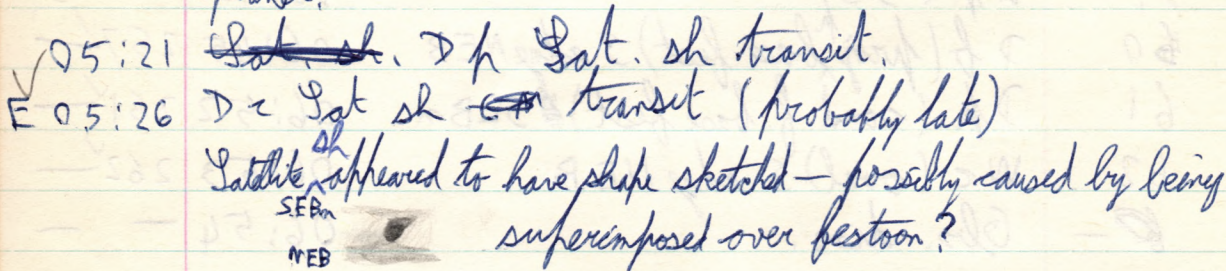 05:21 Sat. sh. D p Sat. sh transit.
E 05:26 D c Sat sh transit (probably late)
Satellite sh appeared to have shape sketched — possibly caused by being
SEBn
superimposed over festoon?
NEB